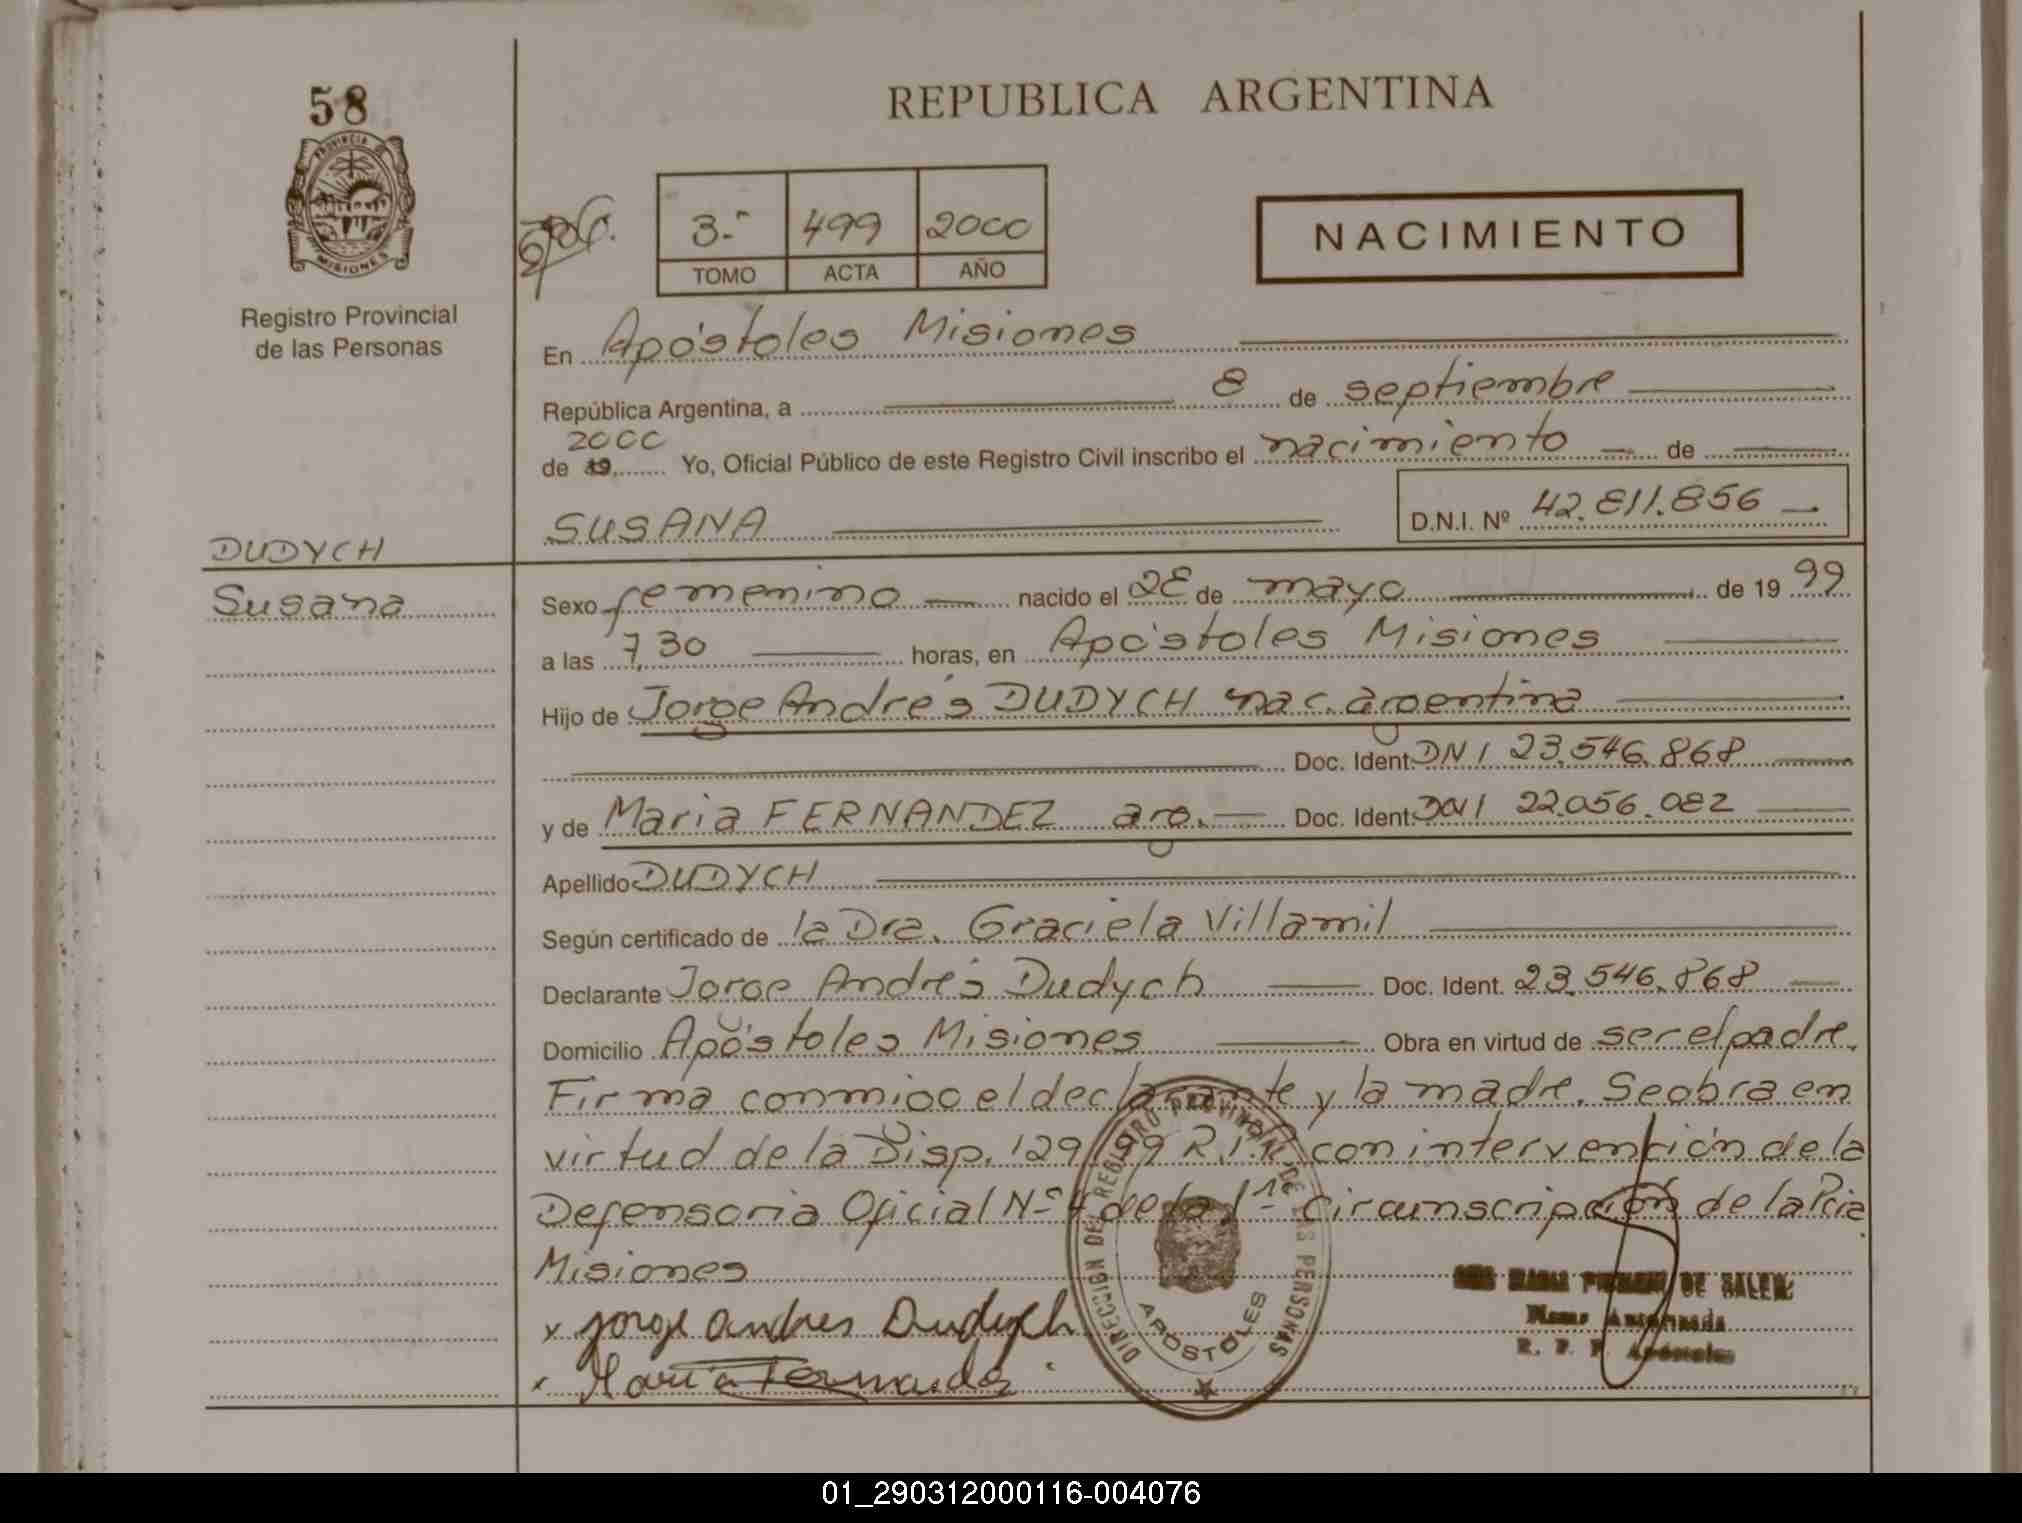 58
PROVINCIA
MISIONES
Registro Provincial
de las Personas
DUDYCH
Susana
REPUBLICA ARGENTINA
3.- 499 2000
TOMO ACTA AÑO
NACIMIENTO
En Apóstoles Misiones
República Argentina, a 8 de septiembre
2000
de 19 Yo, Oficial Público de este Registro Civil inscribo el nacimiento de
SUSANA D.N.I. Nº 42.811.856
Sexo femenino nacido el 28 de mayo de 19 99
a las 7,30 horas, en Apóstoles Misiones
Hijo de Jorge Andrés DUDYCH nac. argentina
Doc. Ident. DNI 23.546.868
y de Maria FERNANDEZ arg. Doc. Ident. DNI 22.056.082
Apellido DUDYCH
Según certificado de la Dra. Graciela Villamil
Declarante Jorge Andrés Dudych Doc. Ident. 23.546.868
Domicilio Apóstoles Misiones Obra en virtud de ser el padre.
Firma conmigo el declarante y la madre. Se obra en
virtud de la Disp. 129/99 R.P.P. con intervención de la
Defensoria Oficial Nº 4 de la 1ª Circunscripción de la Pcia.
Misiones
x Jorge andres Dudych
x Maria Fernandez
DIRECCION DEL REGISTRO PROVINCIAL DE LAS PERSONAS
APOSTOLES
MARIA DE SALEM
Firma Autorizada
R. P. P. Apóstoles
01_290312000116-004076